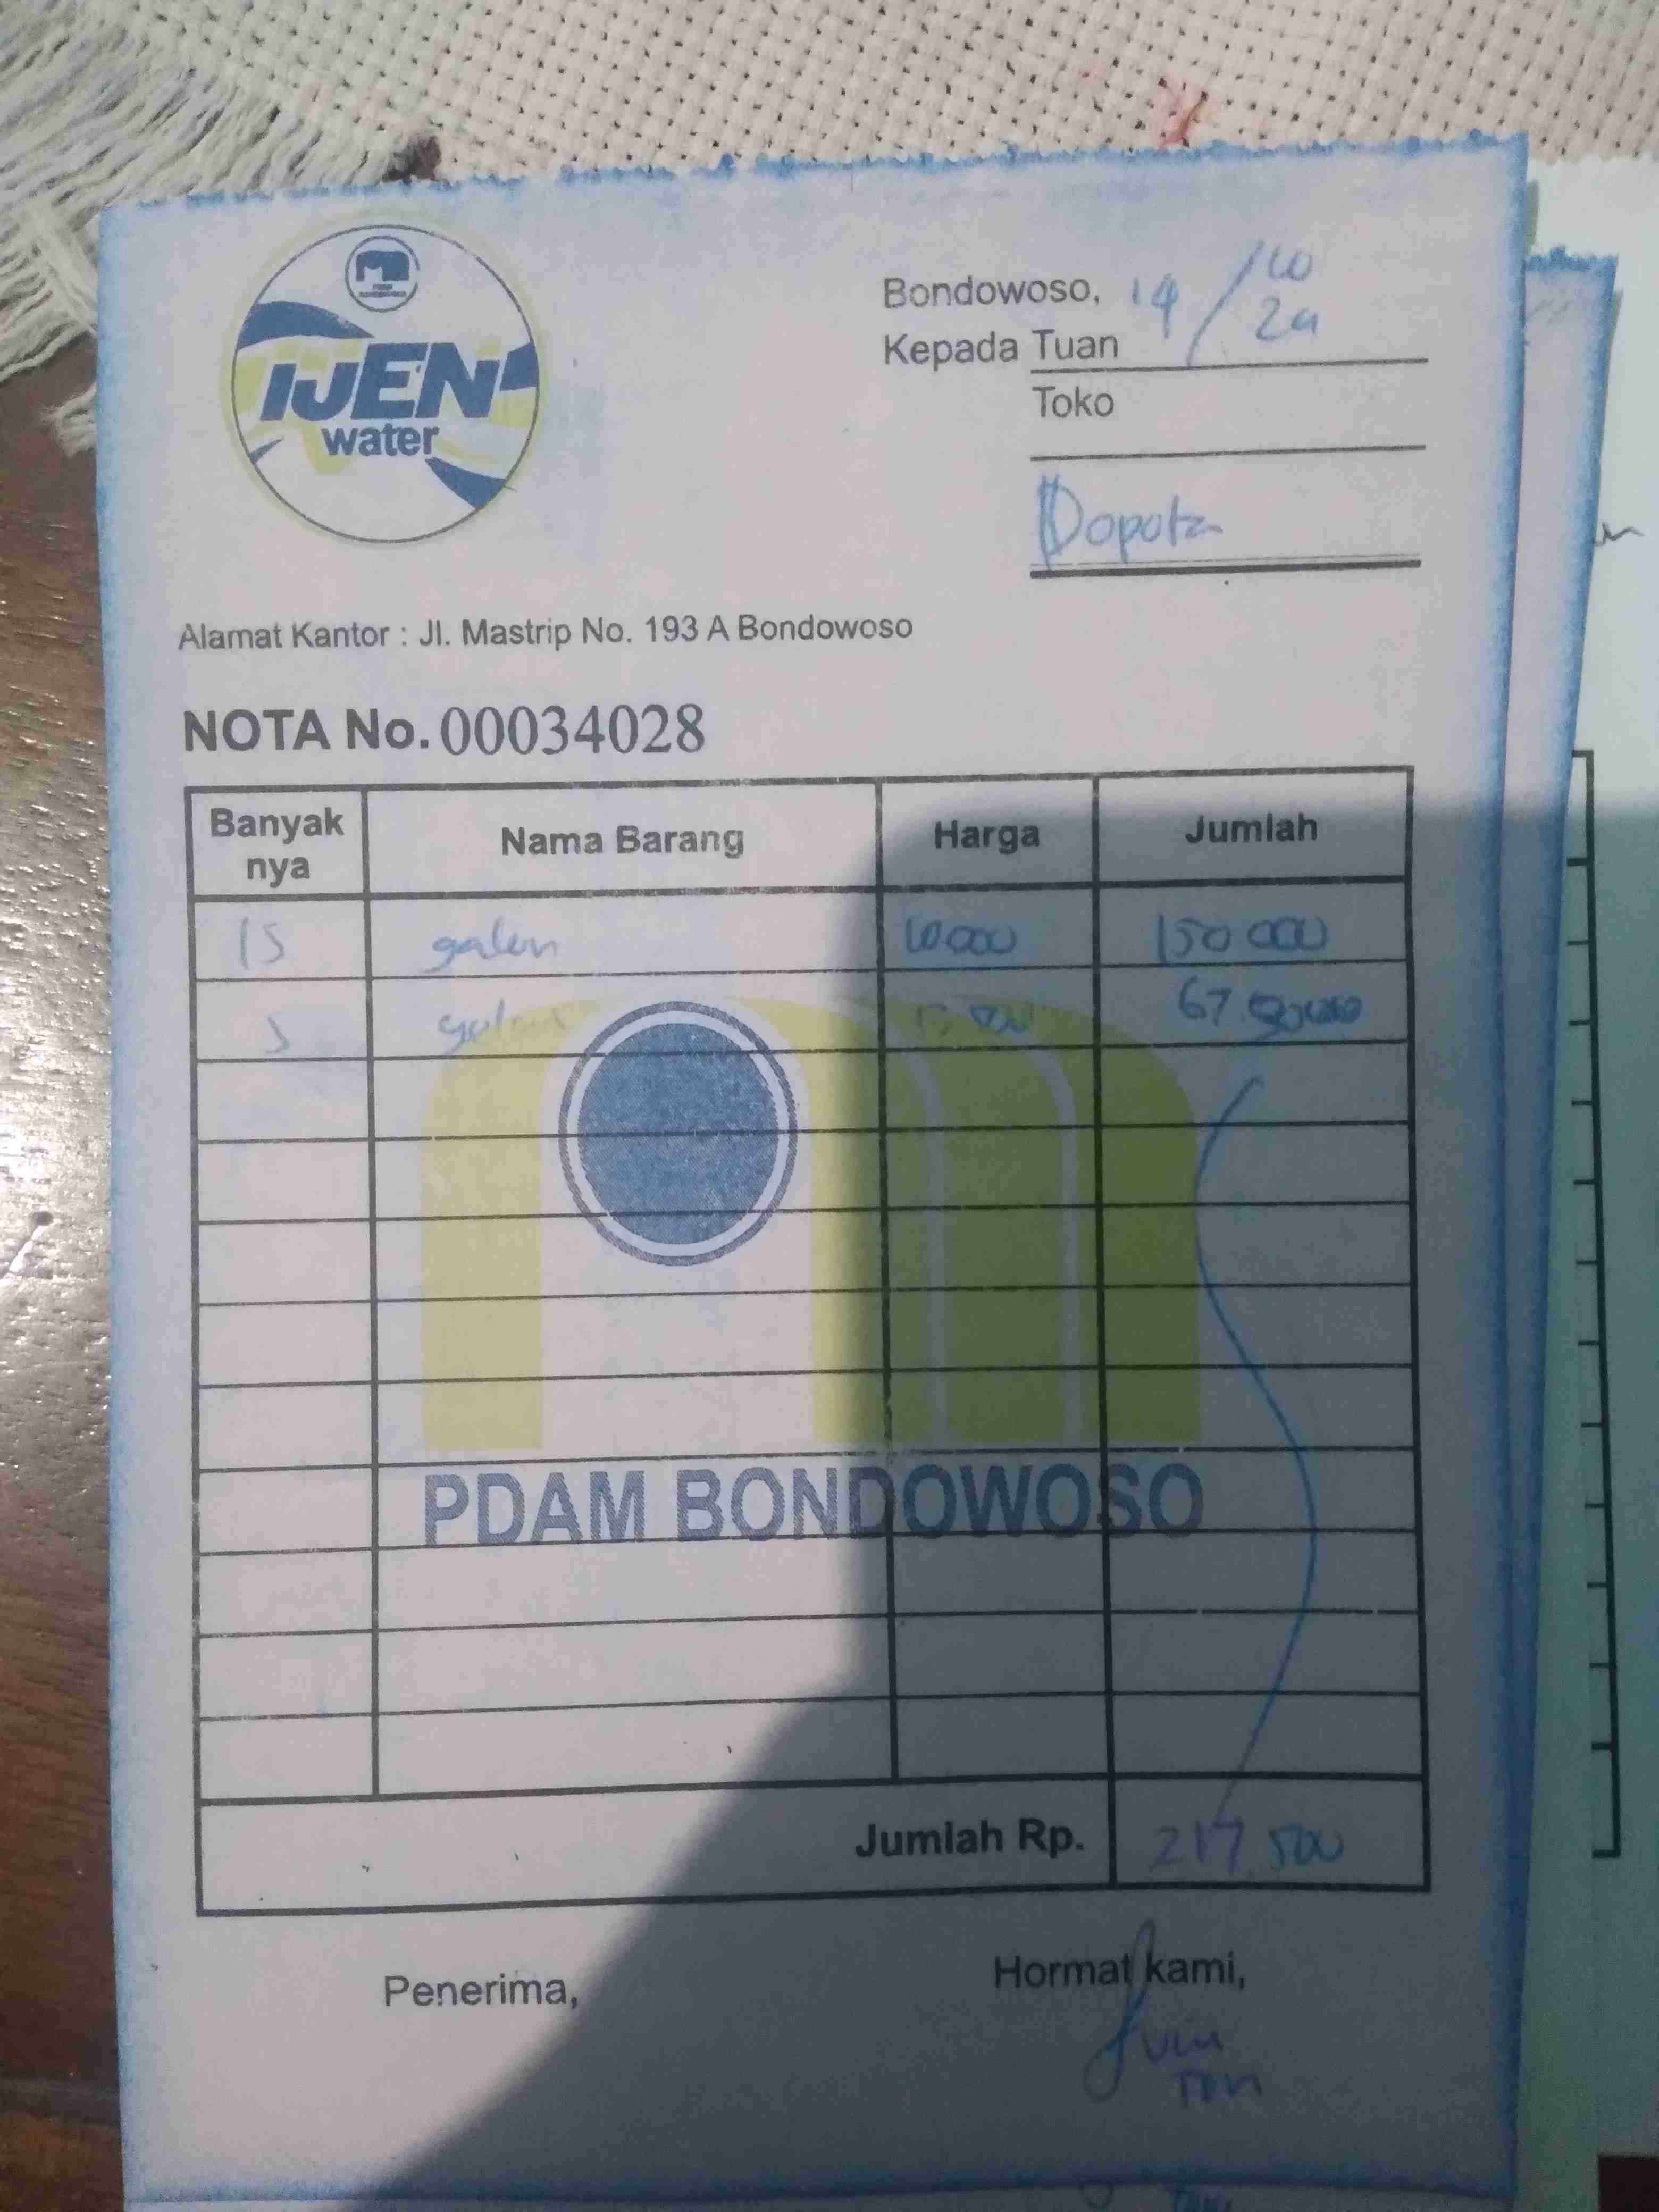 IJEN
water
Bondowoso, 14/10
Kepada Tuan
Toko
Dopota
Alamat Kantor : Jl. Mastrip No. 193 A Bondowoso
NOTA No. 00034028
Banyak nya Nama Barang Harga Jumlah
15 galon 10.000 150 000
5 galon 67.500
PDAM BONDOWOSO
Jumlah Rp. 217.500
Penerima, Hormat kami,